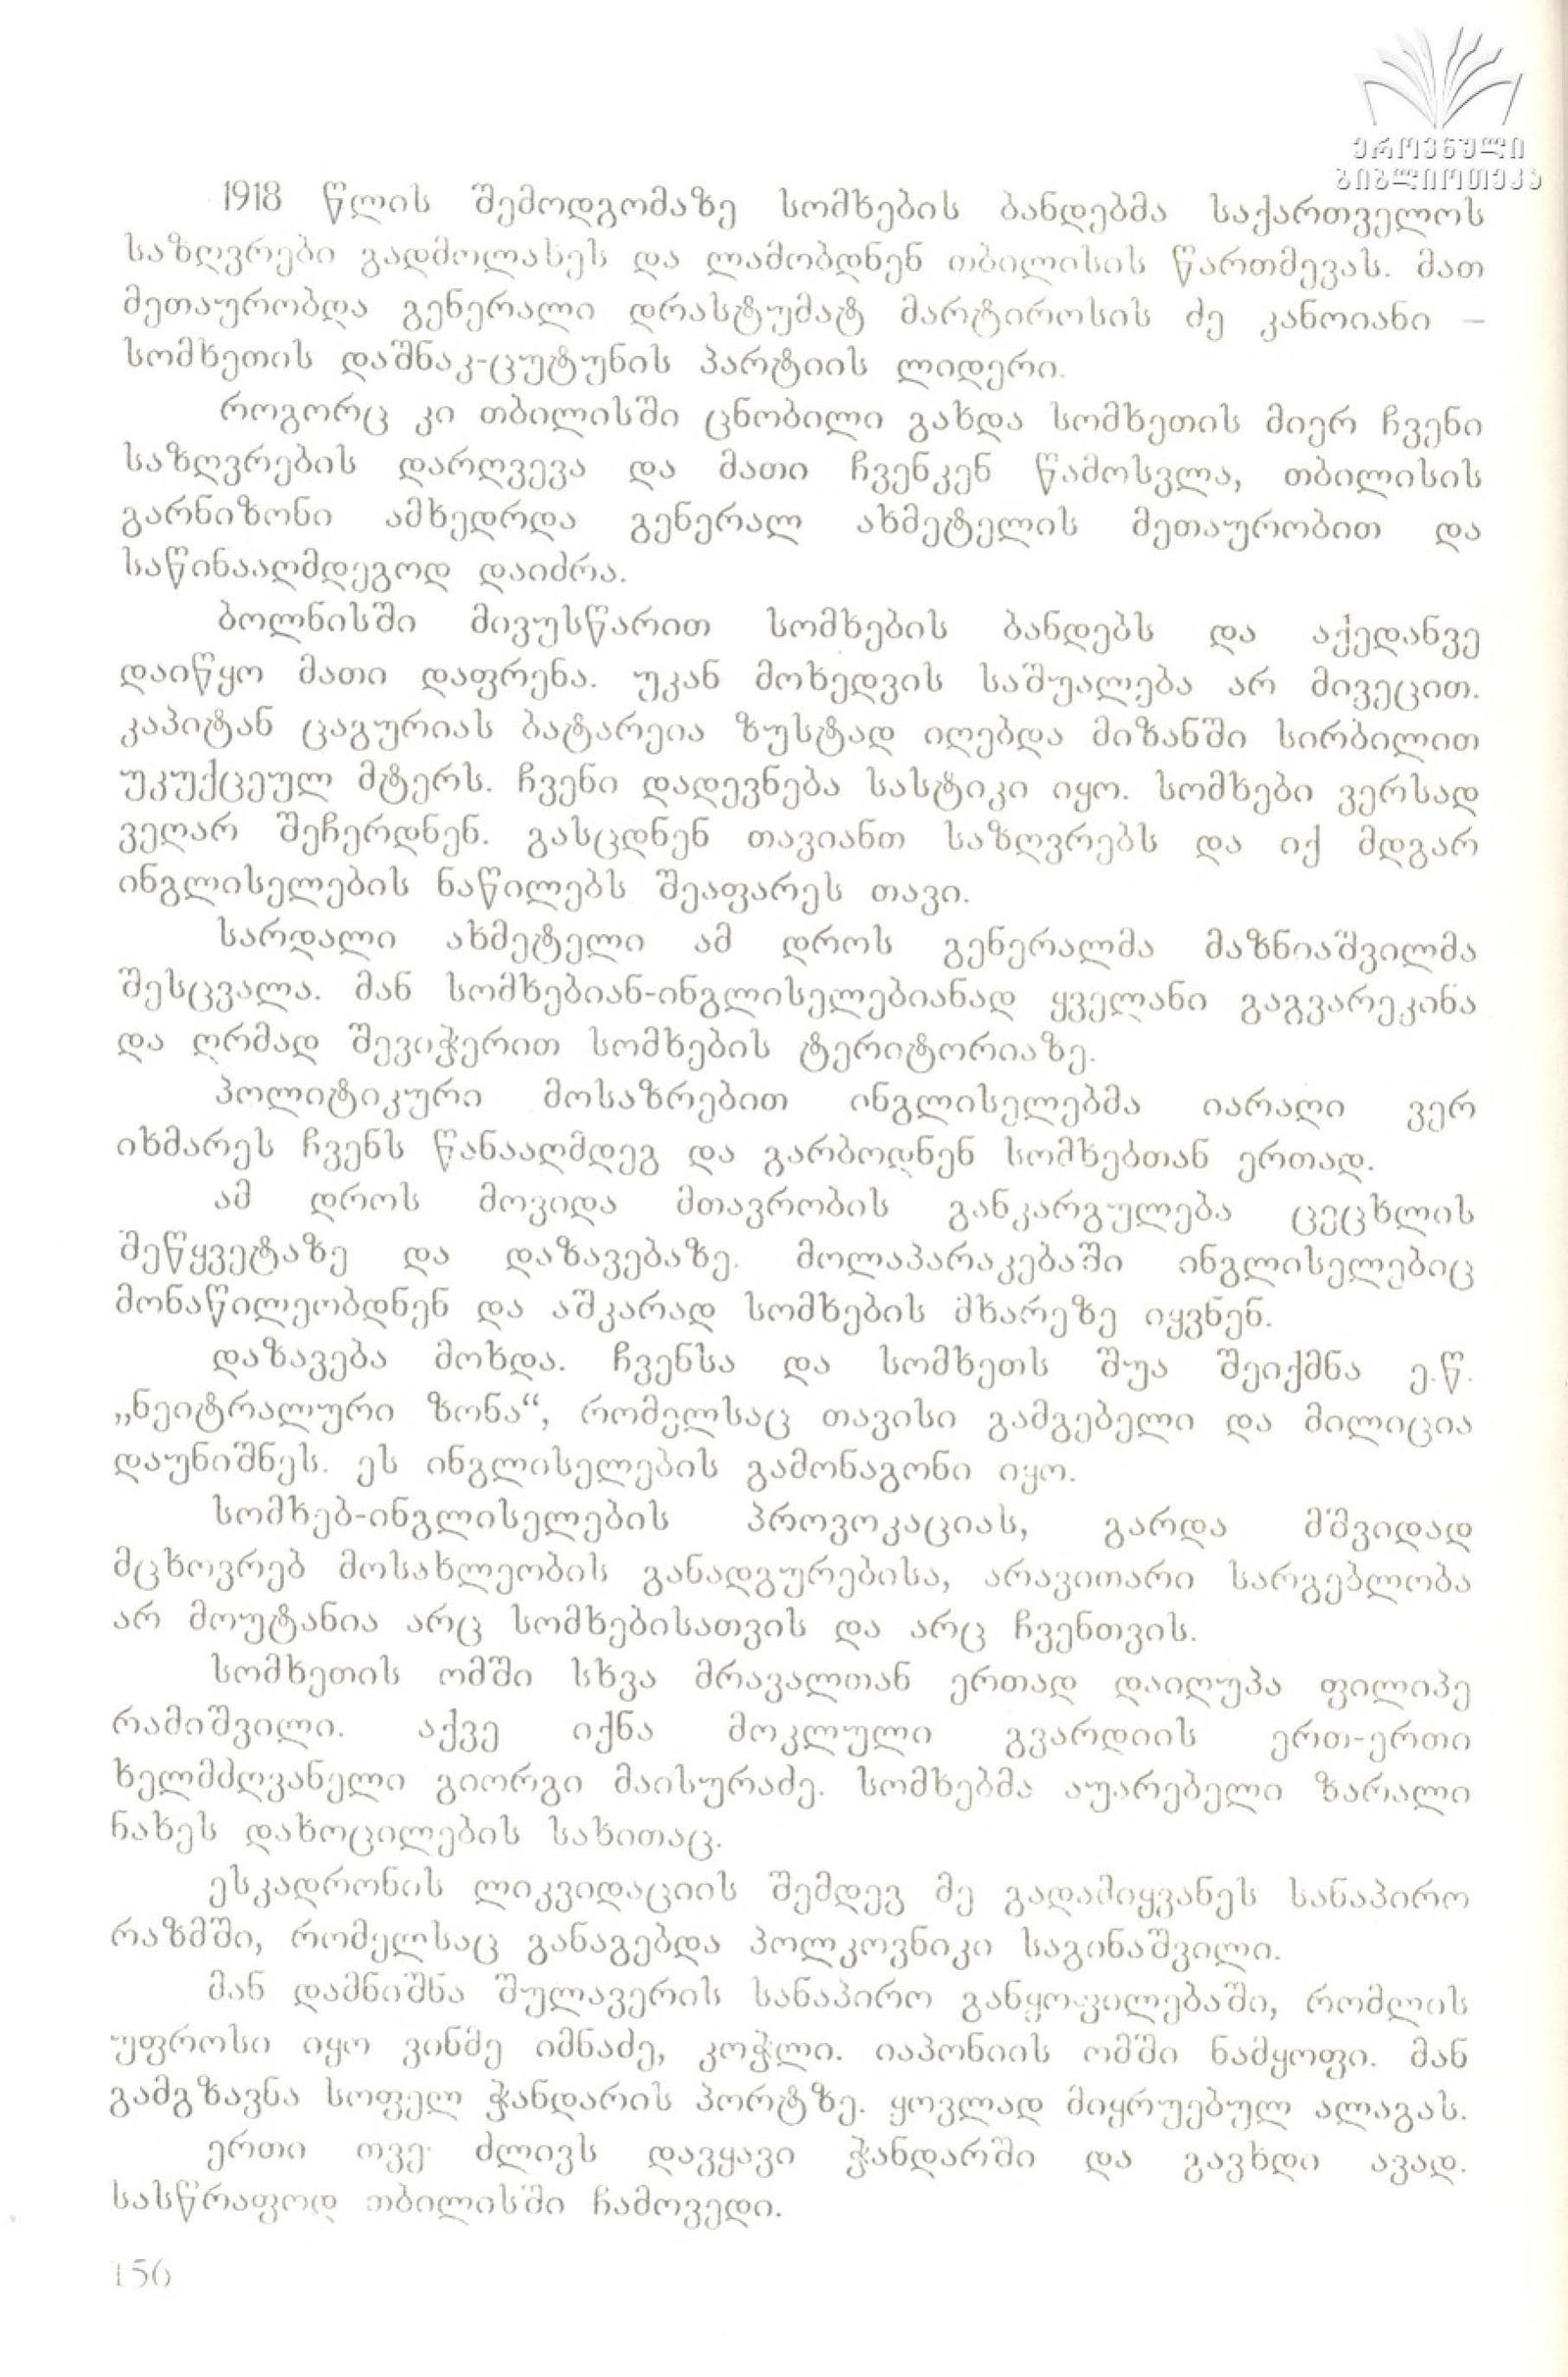 ეროვნული
ბიბლიოთეკა
1918 წლის შემოდგომაზე სომხების ბანდებმა საქართველოს
საზღვრები გადმოლახეს და ლამობდნენ თბილისის წართმევას. მათ
მეთაურობდა გენერალი დრასტუმატ მარტიროსის ძე კანოიანი –
სომხეთის დაშნაკ-ცუტუნის პარტიის ლიდერი.
როგორც კი თბილისში ცნობილი გახდა სომხეთის მიერ ჩვენი
საზღვრების დარღვევა და მათი ჩვენკენ წამოსვლა, თბილისის
გარნიზონი ამხედრდა გენერალ ახმეტელის მეთაურობით და
საწინააღმდეგოდ დაიძრა.
ბოლნისში მივუსწარით სომხების ბანდებს და აქედანვე
დაიწყო მათი დაფრენა. უკან მოხედვის საშუალება არ მივეცით.
კაპიტან ცაგურიას ბატარეია ზუსტად იღებდა მიზანში სირბილით
უკუქცეულ მტერს. ჩვენი დადევნება სასტიკი იყო. სომხები ვერსად
ვეღარ შეჩერდნენ. გასცდნენ თავიანთ საზღვრებს და იქ მდგარ
ინგლისელების ნაწილებს შეაფარეს თავი.
სარდალი ახმეტელი ამ დროს გენერალმა მაზნიაშვილმა
შესცვალა. მან სომხებიან-ინგლისელებიანად ყველანი გაგვარეკინა
და ღრმად შევიჭერით სომხების ტერიტორიაზე.
პოლიტიკური მოსაზრებით ინგლისელებმა იარაღი ვერ
იხმარეს ჩვენს წანააღმდეგ და გარბოდნენ სომხებთან ერთად.
ამ დროს მოვიდა მთავრობის განკარგულება ცეცხლის
შეწყვეტაზე და დაზავებაზე. მოლაპარაკებაში ინგლისელებიც
მონაწილეობდნენ და აშკარად სომხების მხარეზე იყვნენ.
დაზავება მოხდა. ჩვენსა და სომხეთს შუა შეიქმნა ე.წ.
„ნეიტრალური ზონა“, რომელსაც თავისი გამგებელი და მილიცია
დაუნიშნეს. ეს ინგლისელების გამონაგონი იყო.
სომხებ-ინგლისელების პროვოკაციას, გარდა მშვიდად
მცხოვრებ მოსახლეობის განადგურებისა, არავითარი სარგებლობა
არ მოუტანია არც სომხებისათვის და არც ჩვენთვის.
სომხეთის ომში სხვა მრავალთან ერთად დაიღუპა ფილიპე
რამიშვილი. აქვე იქნა მოკლული გვარდიის ერთ-ერთი
ხელმძღვანელი გიორგი მაისურაძე. სომხებმა აუარებელი ზარალი
ნახეს დახოცილების სახითაც.
ესკადრონის ლიკვიდაციის შემდეგ მე გადამიყვანეს სანაპირო
რაზმში, რომელსაც განაგებდა პოლკოვნიკი საგინაშვილი.
მან დამნიშნა შულავერის სანაპირო განყოფილებაში, რომლის
უფროსი იყო ვინმე იმნაძე, კოჭლი. იაპონიის ომში ნამყოფი. მან
გამგზავნა სოფელ ჭანდარის პორტზე. ყოვლად მიყრუებულ ალაგას.
ერთი თვე ძლივს დავყავი ჭანდარში და გავხდი ავად.
სასწრაფოდ თბილისში ჩამოვედი.
156